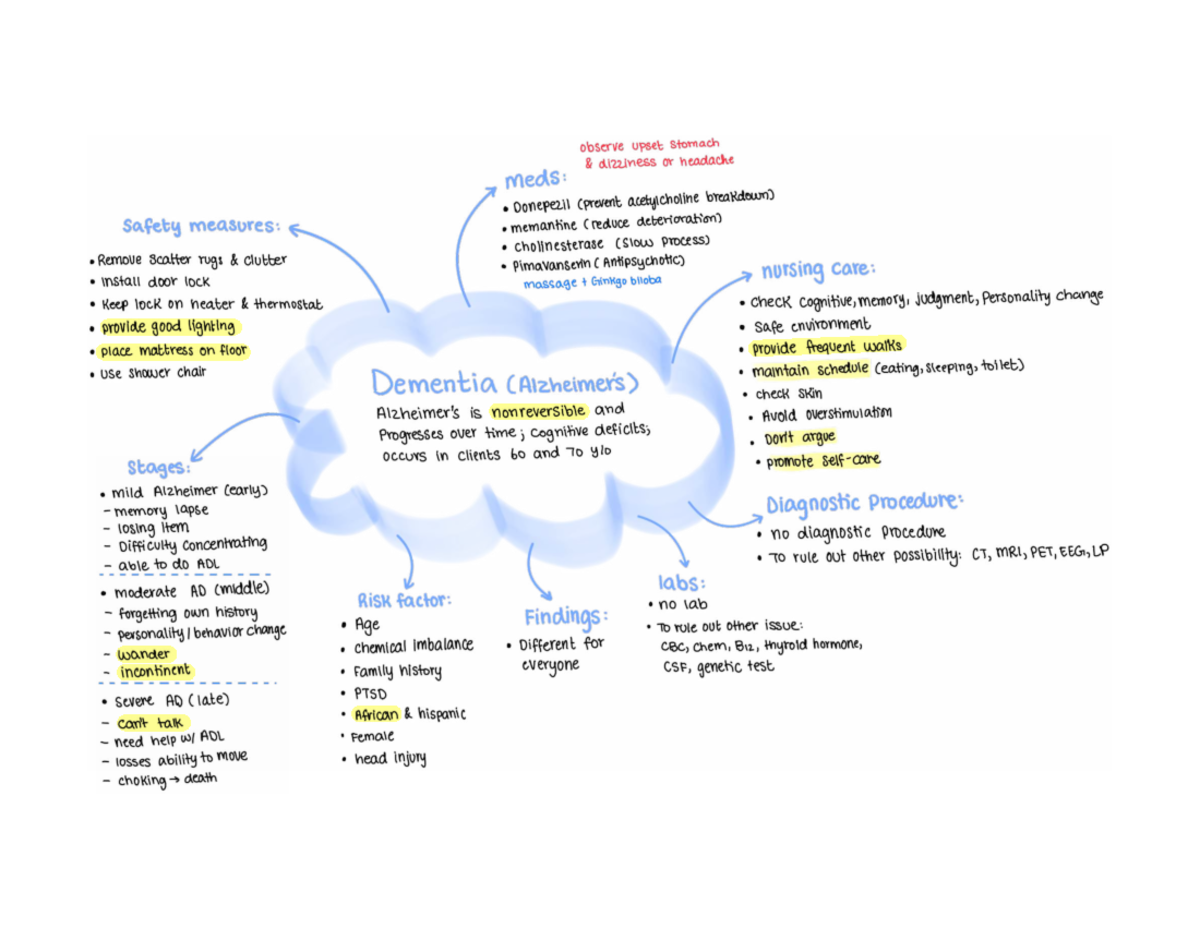 observe upset stomach
& dizziness or headache
meds:
• Donepezil (prevent acetylcholine breakdown)
• memantine (reduce deterioration)
• cholinesterase (slow process)
• Pimavanserin (Antipsychotic)
massage + Ginkgo biloba
Safety measures:
• Remove scatter rugs & clutter
• Install door lock
• Keep lock on heater & thermostat
• provide good lighting
• place mattress on floor
• use shower chair
nursing care:
• check cognitive, memory, judgment, Personality change
• Safe environment
• provide frequent walks
• maintain schedule (eating, sleeping, toilet)
• check skin
• Avoid overstimulation
• Don't argue
• promote self-care
Dementia (Alzheimer's)
Alzheimer's is nonreversible and
Progresses over time; cognitive deficits;
occurs in clients 60 and 70 y/o
Stages:
• mild Alzheimer (early)
- memory lapse
- losing item
- Difficulty concentrating
- able to do ADL
• moderate AD (middle)
- forgetting own history
- personality/behavior change
- wander
- incontinent
• severe AD (late)
- can't talk
- need help w/ ADL
- losses ability to move
- choking → death
Risk factor:
• Age
• chemical imbalance
• Family history
• PTSD
• African & hispanic
• Female
• head injury
Findings:
• Different for
everyone
labs:
• no lab
• To rule out other issue:
CBC, chem, B12, thyroid hormone,
CSF, genetic test
Diagnostic Procedure:
• no diagnostic procedure
• To rule out other possibility: CT, MRI, PET, EEG, LP